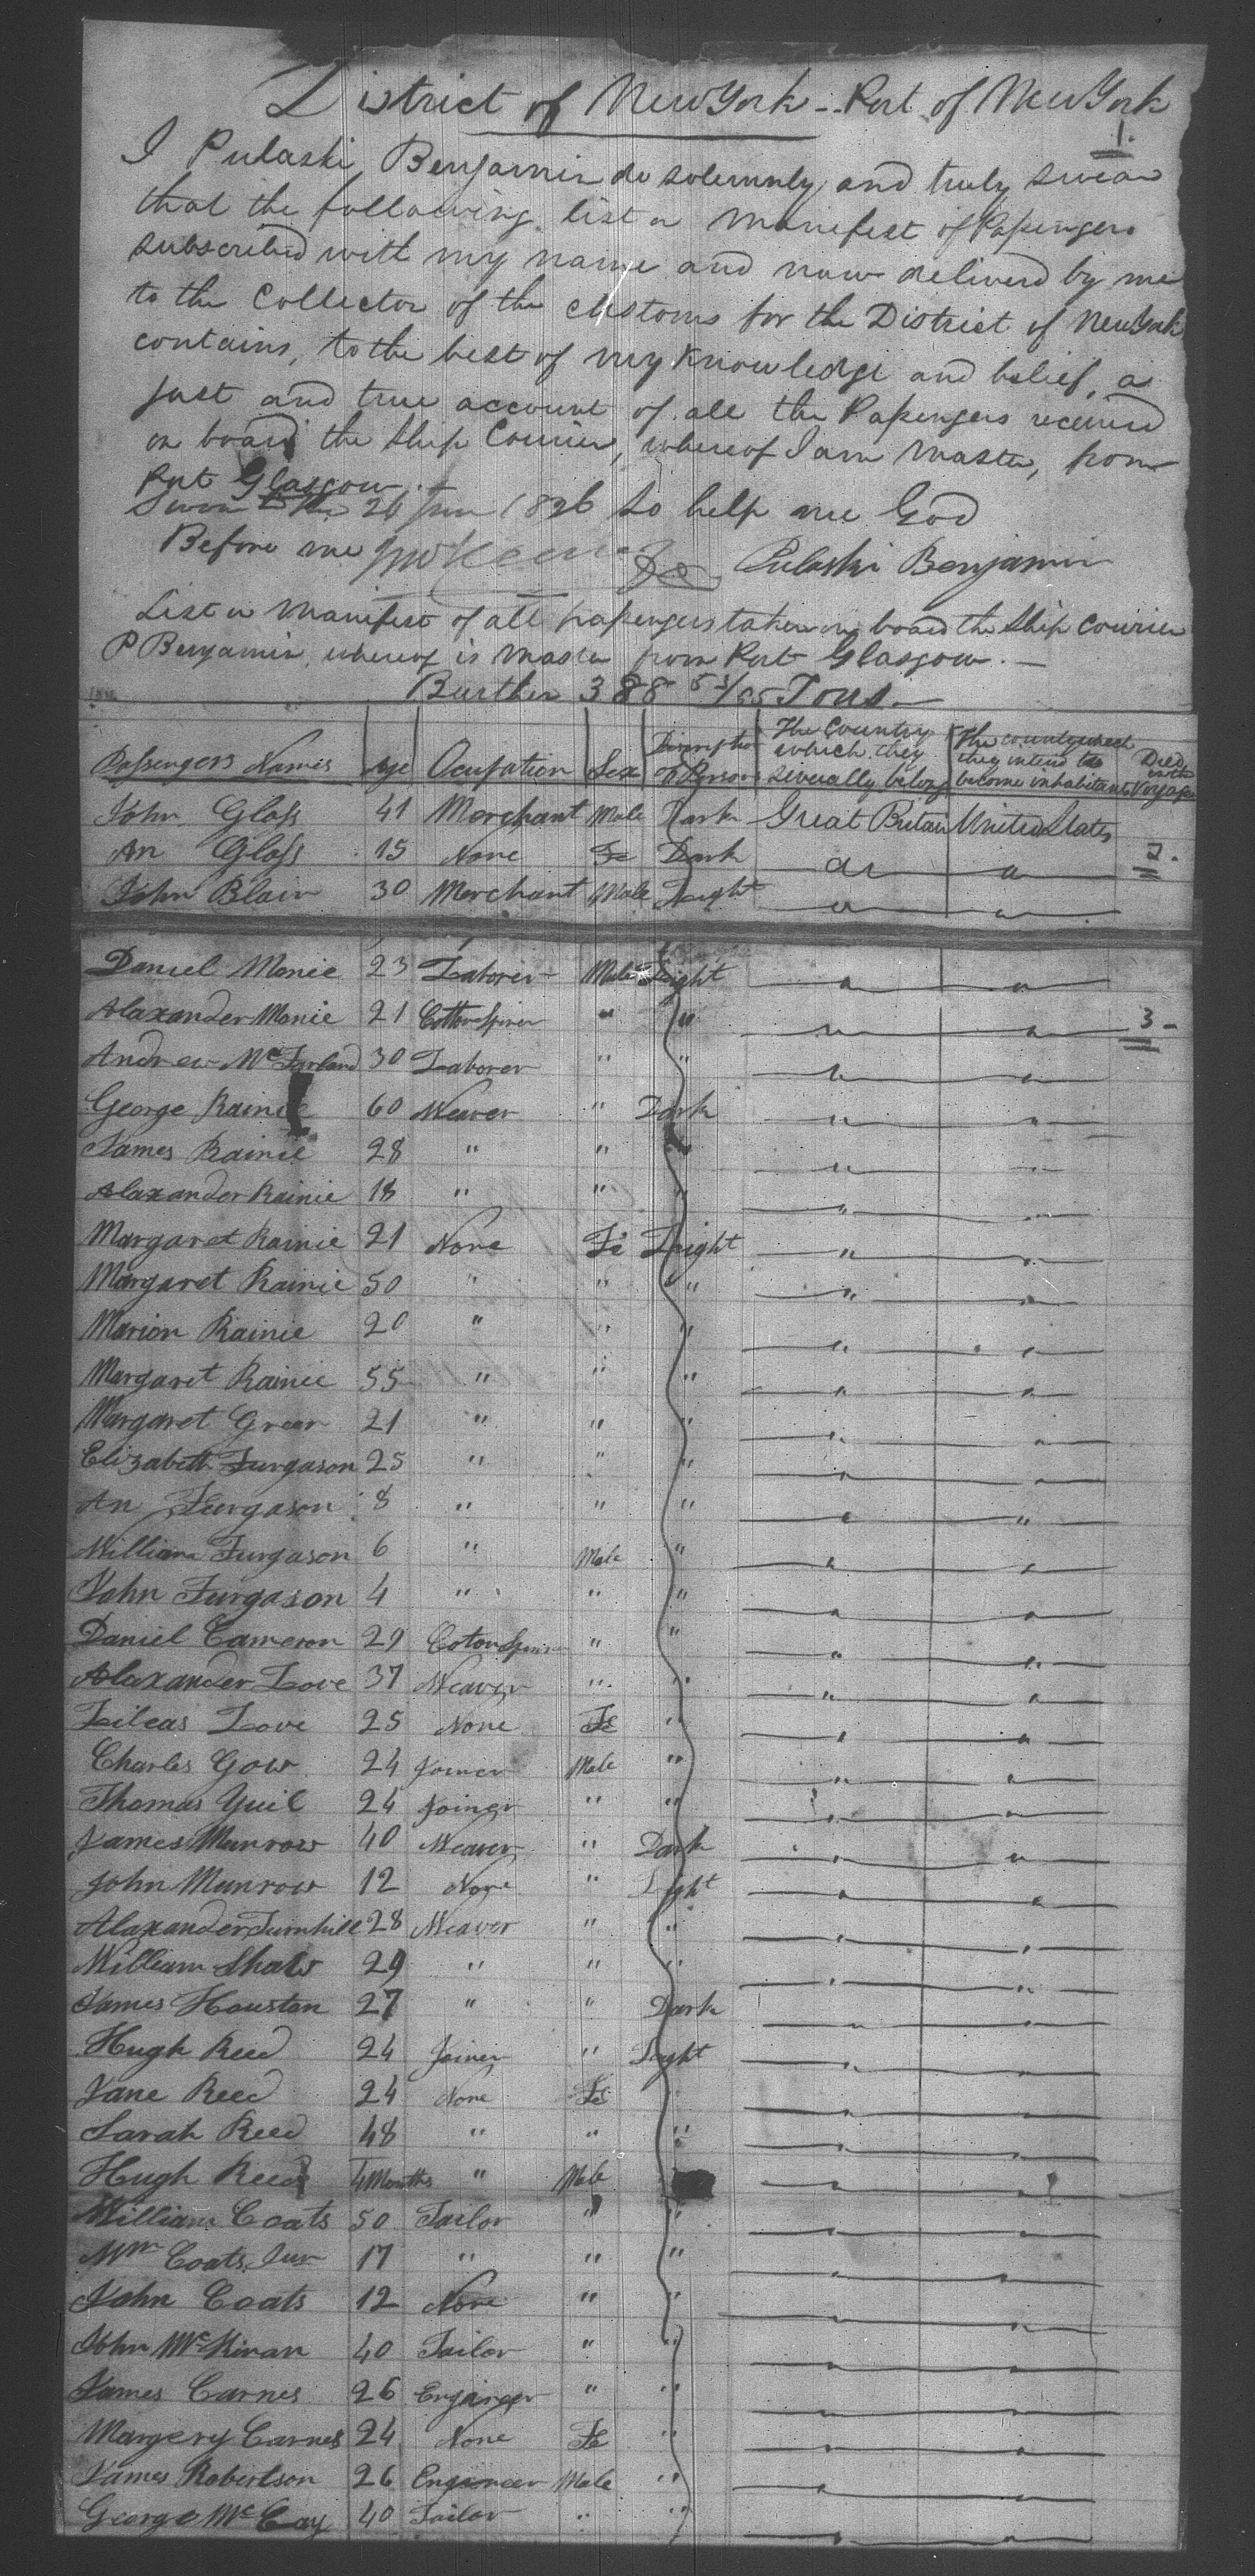 District of New York - Port of New York
1.
I Pulaski Benjamin do solemnly, and truly swear
that the following list or Manifest of Passengers
subscribed with my name and now deliverd by me
to the Collector of the customs for the District of New York
contains, to the best of my knowledge and belief, a
just and true account of all the Passengers received
on board the Ship Courier, whereof I am Master, from
Port Glasgow.
Sworn to this 26 June 1826 So help me God
Before me Pulaski Benjamin
List or Manifest of all passengers taken on board the Ship Courier
P Benjamin, whereof is Master from Port Glasgow. -
Burthen 388 53/95 Tons -
Passengers Names Age Ocupation Sex Discription of Persons The Country which they severally belong The country which they intend to become inhabitants Died on the Voyage
John Glass 41 Merchant Male Dark Great Britain United States
An Glass 15 None Fe Dark " " 2.
John Blair 30 Merchant Male Leight " "
Daniel Monie 23 Laborer Male Leight " "
Alaxander Monie 21 Cotton Spiner " " " " 3 -
Andrew McFarland 30 Laborer " " " "
George Rainie 60 Weaver " Dark " "
James Rainie 28 " " " " "
Alaxander Rainie 18 " " " " "
Margaret Rainie 21 None Fe Leight " "
Margaret Rainie 50 " " " " "
Marion Rainie 20 " " " " "
Margaret Rainie 55 " " " " "
Margaret Greer 21 " " " " "
Elizabeth Furgason 25 " " " " "
An Furgason 8 " " " " "
William Furgason 6 " Male " " "
John Furgason 4 " " " " "
Daniel Cameron 29 Coton Spiner " " " "
Alaxander Love 37 Weaver " " " "
Lileas Love 25 None Fe " " "
Charles Gow 24 Joiner Male " " "
Thomas Yuil 24 Joiner " " " "
James Munrow 40 Weaver " Dark " "
John Munrow 12 None " Light " "
Alaxander Turnhill 28 Weaver " " " "
William Shaw 29 " " " " "
James Houston 27 " " Dark " "
Hugh Reed 24 Joiner " Leight " "
Jane Reed 24 None Fe " "
Sarah Reed 48 " " " " "
Hugh Reed 4 Months " Male " "
William Coats 50 Tailor " " " "
Wm Coats Jun 17 " " " " "
John Coats 12 None " " " "
John McKinan 40 Tailor " " " "
James Carnes 26 Engineer " " " "
Margery Carnes 24 None Fe " " "
James Robertson 26 Engineer Male " " "
George McCay 40 Tailor " " " "